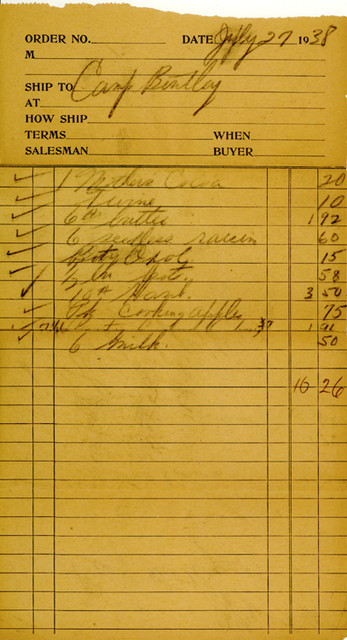 ORDER NO. DATE July 27 1938
M
SHIP TO Camp Bentley
AT
HOW SHIP
TERMS WHEN
SALESMAN BUYER
1 Mothers Cocoa 20
Twine 10
6 # butter 1 92
6 seedless raisin 60
15
58
10 # 3 50
Pk Cooking apples 75
37 1 91
6 milk. 50
10 26